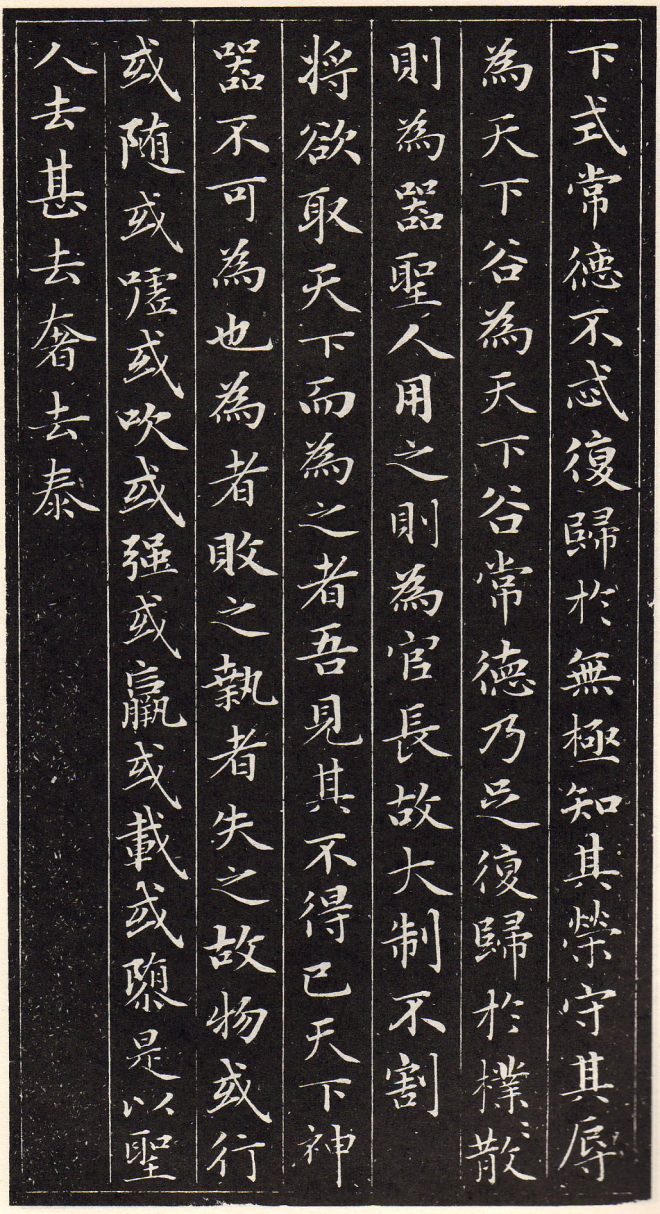 下式常德不忒復歸於無極知其榮守其辱
為天下谷為天下谷常德乃足復歸於樸〻散
則為器聖人用之則為官長故大制不割
將欲取天下而為之者吾見其不得已天下神
器不可為也為者敗之執者失之故物或行
或随或嘘或吹或强或羸或載或隳是以聖
人去甚去奢去泰